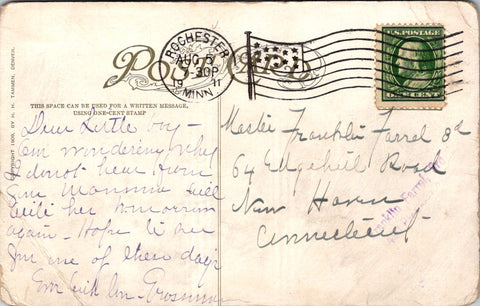 ROCHESTER
AUG 5
30P
19 11
MINN.
POST CARD
U.S. POSTAGE
CENT
COPYRIGHT 1905, BY H. H. TAMMEN, DENVER.
THIS SPACE CAN BE USED FOR A WRITTEN MESSAGE,
USING ONE-CENT STAMP
Dear Little boy -
am wondering why
I do not hear from
you Mamma will
write her tomorrow
again - Hope to see
you one of these days
Master Franklin Farrel 3d
64 Edgehill Road
New Haven
Connecticut